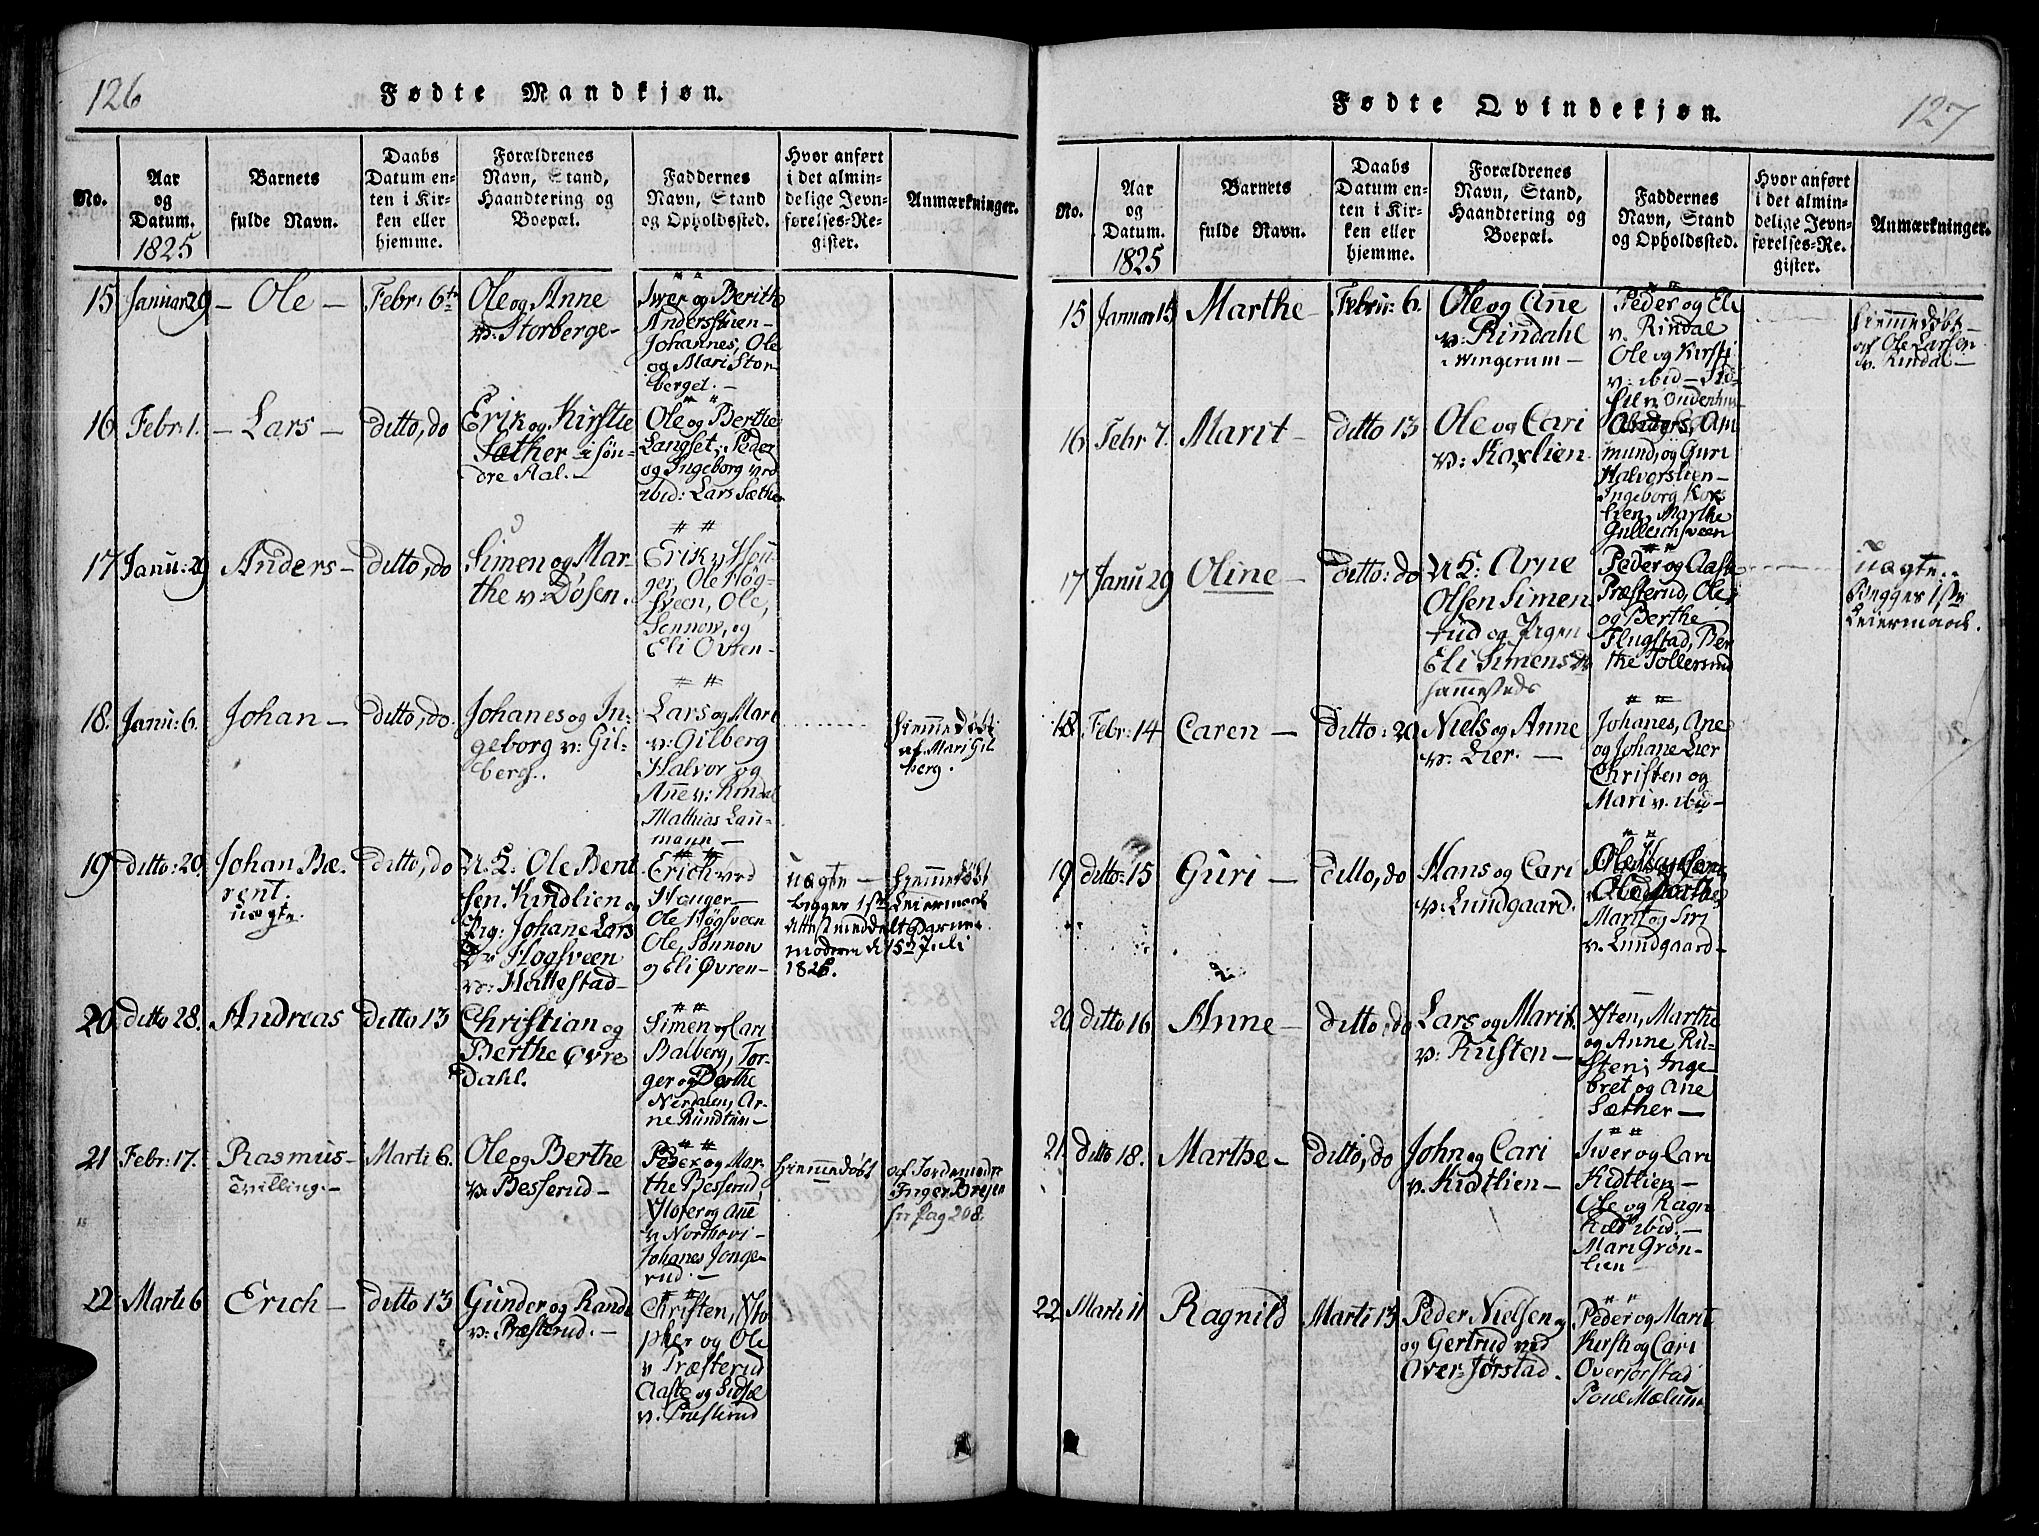 126
Fødte Mandkjøn.
No.
Aar
og
Datum.
1825
Barnets
fulde Navn.
Daabs
Datum en-
ten i Kir-
ken eller
hjemme.
Forældrenes
Navn, Stand,
Haandtering og
Boepæl.
Faddernes
Navn, Stand
og Opholdssted.
Hvor anført
i det almin-
delige Jevn-
førelses-Re-
gister.
Anmærkninger.
15 Januar 29 – Ole – Febr: 6te
Ole og Anne
v: Storberge-
Iver og Berithe
Johannes, Ole
og Mari Stor-
berget. –
16 Febr: 1. – Lars – ditto, do
Erik og Kirstie
Sæther i søn-
dre Aal. –
Ole og Berthe
Langset, Peder
og Ingeborg
ibid: Lars Sæther
17 Janu: 29 Anders – ditto, do
Simen og Mar-
the v: Døsen.
Erik v: Hou-
ger, Ole Høg-
sveen, Ole,
Sønnow, og
Eli Øvren –
18. Janu: 6. Johan – ditto, do.
Johanes og In-
geborg v: Gil-
berg.
Lars og Mari
v: Gilberg
Halvor og
Anne v: Rindal
Mathias Lau-
mann –
hiemmedøbt
af Mari Gil
berg.
19 ditto: 20. Johan Be-
rent.
uægte.
ditto, do
U. E: Ole Bent
sen Kindlien og
Pig: Johane Lars
Dr Høgsveen
v: Hattestad –
Erich ved
Houger –
Ole Høgsveen
Ole, Sønnow
og Eli Øvren –
uægte –
begges 1ste Leiermaal
Attest meddelt Barne-
moderen d 15de Juli
1826.
hiemmedøbt
20. ditto 28. Andreas ditto 13
Christian og
Berthe Øvre
dahl.
Simen og Cari
Balberg, Tor-
ger og Berthe
Nerdalen, Ar-
ne Rundtum –
21 Febr: 17. Rasmus –
Tvilling. –
Marti 6.
Ole og Berthe
v: Besserud –
Peder og Mar-
the Besserud,
v Northovi –
Johanes Jonge-
rud. –
hiemmedøbt
af Jordemodr
Inger Brejen
see pag 208.
22 Marti 6 Erich – ditto 13
Gunder og Rande
v: Præsterud. –
Christen, Xsto
pher og Ole
v Præsterud
Aaste og Sidsel
v: Præsterud
127
Fødte Qvindekjøn.
No.
Aar
og
Datum.
1825
Barnets
fulde Navn.
Daabs
Datum en-
ten i Kir-
ken eller
hjemme.
Forældrenes
Navn, Stand,
Haandtering og
Boepæl.
Faddernes
Navn, Stand
og Opholdssted.
Hvor anført
i det almin-
delige Jevn-
førelses-Re-
gister.
Anmærkninger.
15 Januar 15 Marthe – Febru: 6.
Ole og Ane
v: Rindahl
i Wingerum –
Peder og Eli
v. Rindal
Ole og Kirsti
v: ibid –
hiemmedøbt –
af Ole Larsen
v. Rindal –
16 Febr 7. Marit – ditto 13
Ole og Cari
v: Korslien
Anders, Am
mund, og Guri
Halvorslien –
Ingeborg Kors
lien, Marthe
17 Janu 29 Oline – ditto: do
U E: Arne
Olsen Simen
rud og Pigen
Eli Simens Dr
sammesteds
Peder og Aaste
Præsterud, Ole
og Berthe
Flugstad, Ber
the Tollersrud
uægte..
Begges 1ste
Leiermaal.
18 Febr: 14 Caren – ditto: 20
Niels og Anne
v: Lier. –
Johanes, Ane
og Johane Lier
Christen og
Mari v. ibid –
19 ditto: 15 Guri – ditto, do
Hans og Cari
v: Lundgaard.
Marit og Siri
v. Lundgaard –
20 ditto 16 Anne – ditto, do
Lars og Marit
v: Rusten –
Østen, Marthe
og Anne Ru-
sten, Inge
bret og Ane
Sæther –
21. ditto 18. Marthe – ditto, do
John og Cari
v. Kidtlien –
Iver og Cari
Kidtlien –
Ole og Ragn
hild ibid. –
Mari Grøn-
lien –
22 Marti 11 Ragnild Marti 13
Peder Nielsen
og Gertrud ved
Over-Jørstad.
Peder og Marit
Kirsti og Cari
Overjørstad
Poul Mælum